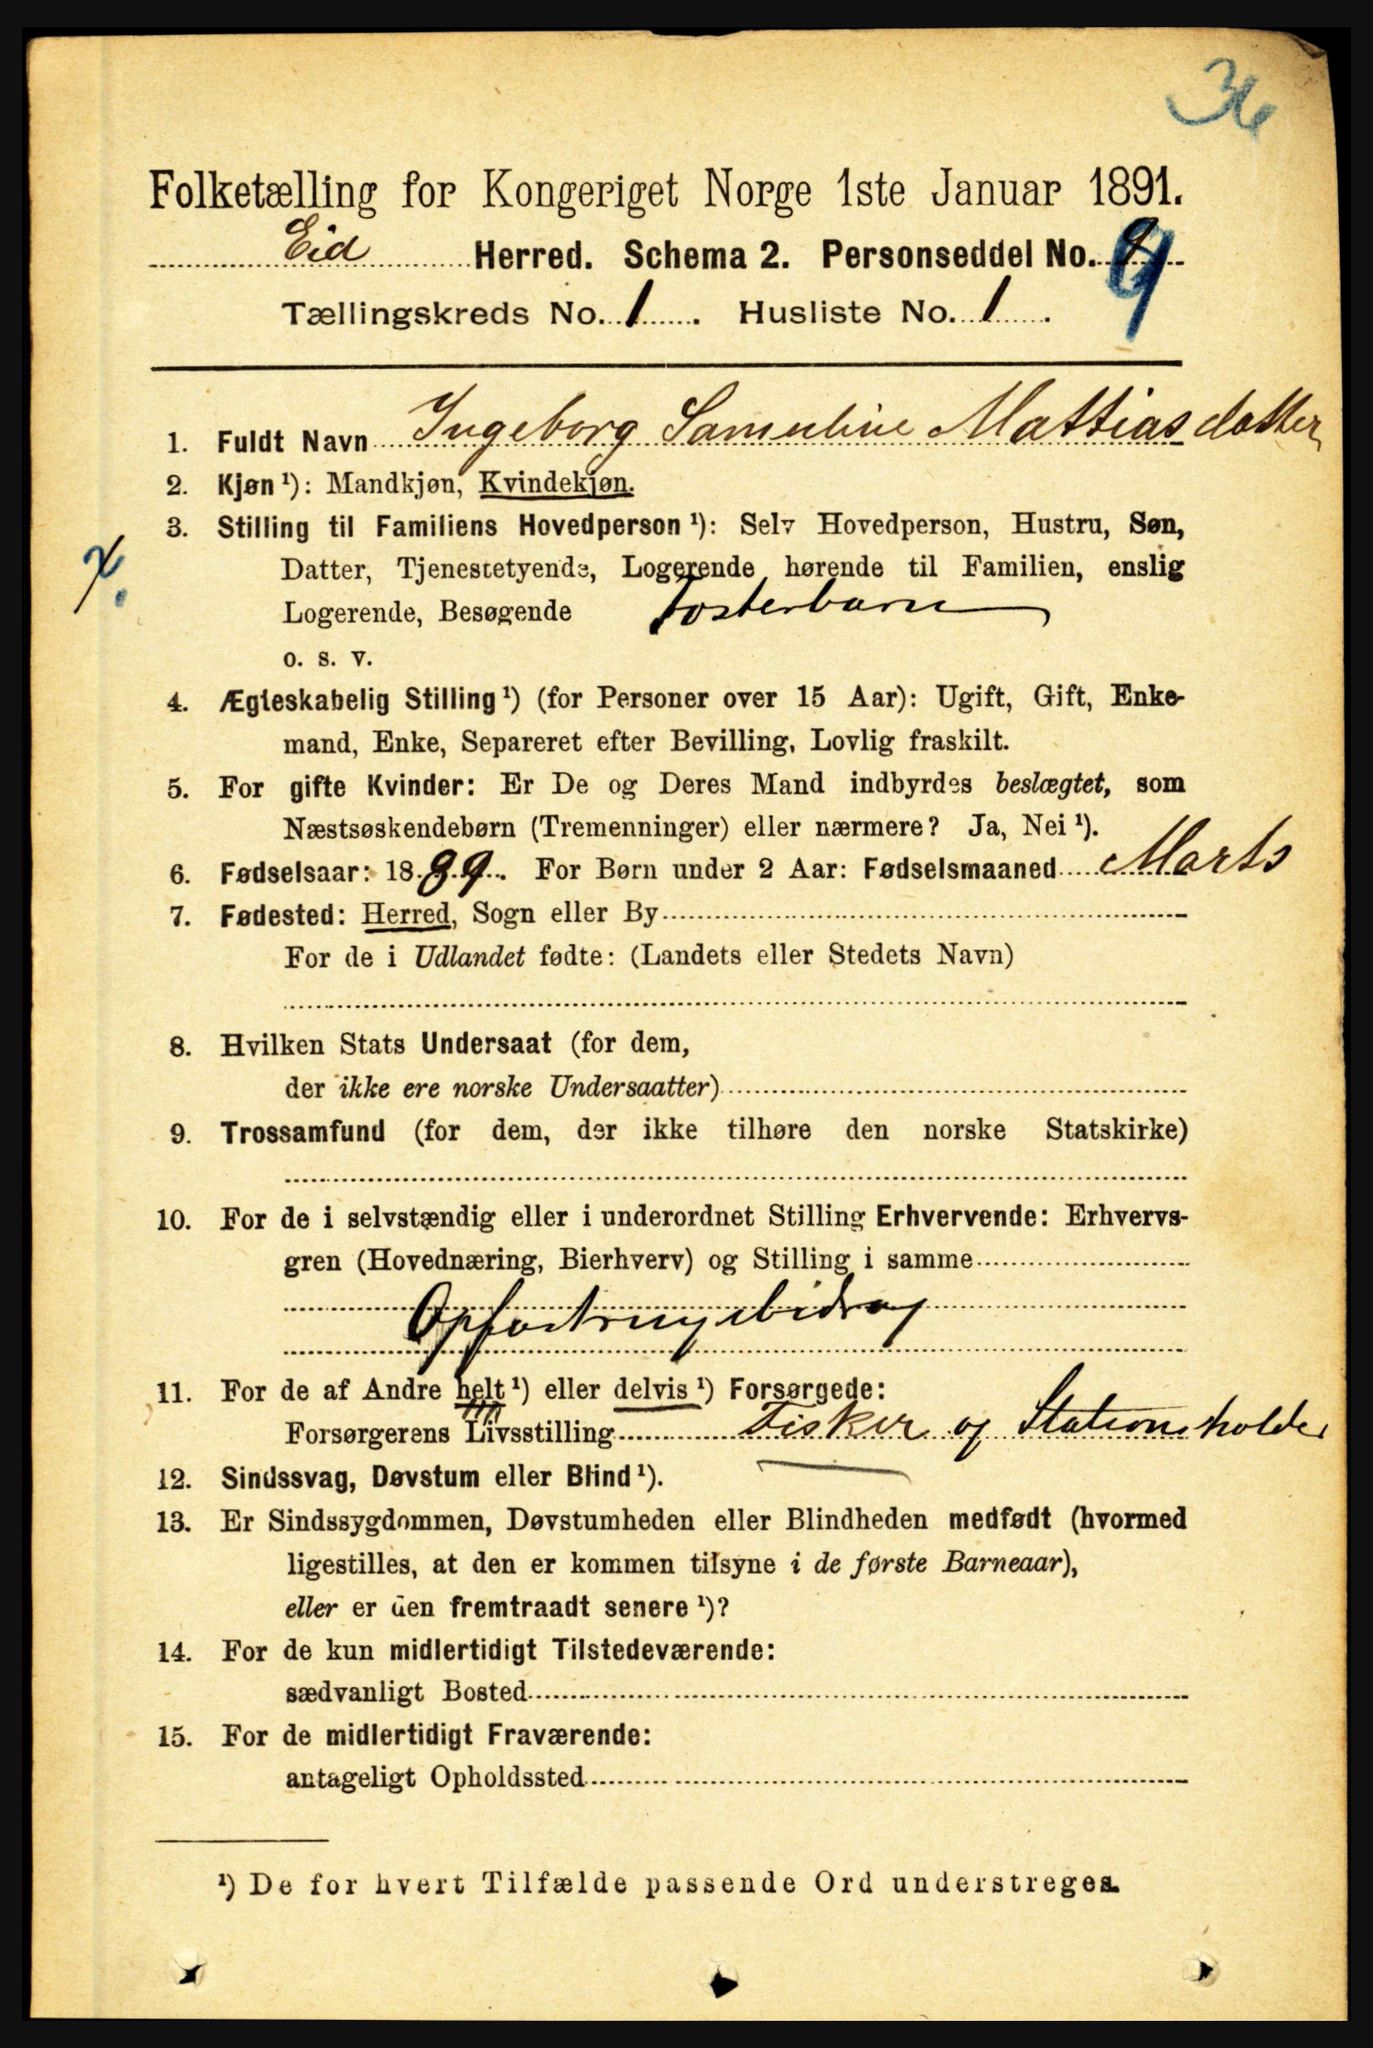 36
Folketælling for Kongeriget Norge 1ste Januar 1891.
Eid Herred. Schema 2. Personseddel No. 9
Tællingskreds No. 1. Husliste No. 1.
1. Fuldt Navn Ingeborg Samuline Mattiasdatter
2. Kjøn ¹): Mandkjøn, Kvindekjøn.
3. Stilling til Familiens Hovedperson ¹): Selv Hovedperson, Hustru, Søn,
Datter, Tjenestetyende, Logerende hørende til Familien, enslig
Logerende, Besøgende Fosterbarn
o. s. v.
4. Ægteskabelig Stilling ¹) (for Personer over 15 Aar): Ugift, Gift, Enke-
mand, Enke, Separeret efter Bevilling, Lovlig fraskilt.
5. For gifte Kvinder: Er De og Deres Mand indbyrdes beslægtet, som
Næstsøskendebørn (Tremenninger) eller nærmere? Ja, Nei ¹).
6. Fødselsaar: 1889. For Børn under 2 Aar: Fødselsmaaned Marts
7. Fødested: Herred, Sogn eller By
For de i Udlandet fødte: (Landets eller Stedets Navn)
8. Hvilken Stats Undersaat (for dem,
der ikke ere norske Undersaatter)
9. Trossamfund (for dem, der ikke tilhøre den norske Statskirke)
10. For de i selvstændig eller i underordnet Stilling Erhvervende: Erhvervs-
gren (Hovednæring, Bierhverv) og Stilling i samme
Opfostringsbidrag
11. For de af Andre helt ¹) eller delvis ¹) Forsørgede:
Forsørgerens Livsstilling Fisker og Stationsholder
12. Sindssvag, Døvstum eller Blind ¹).
13. Er Sindssygdommen, Døvstumheden eller Blindheden medfødt (hvormed
ligestilles, at den er kommen tilsyne i de første Barneaar),
eller er den fremtraadt senere ¹)?
14. For de kun midlertidigt Tilstedeværende:
sædvanligt Bosted
15. For de midlertidigt Fraværende:
antageligt Opholdssted
¹) De for hvert Tilfælde passende Ord understreges.